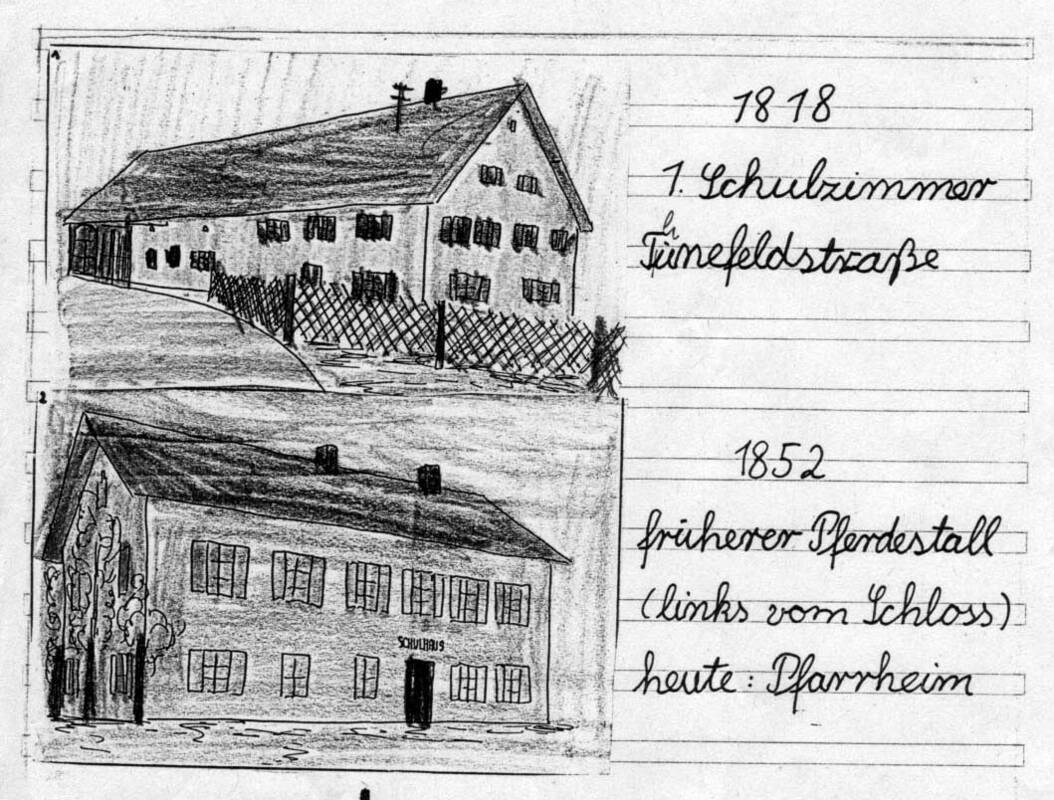 1
1818
1. Schulzimmer
Thünefeldstraße
2
SCHULHAUS
1852
früherer Pferdestall
(links vom Schloss)
heute: Pfarrheim